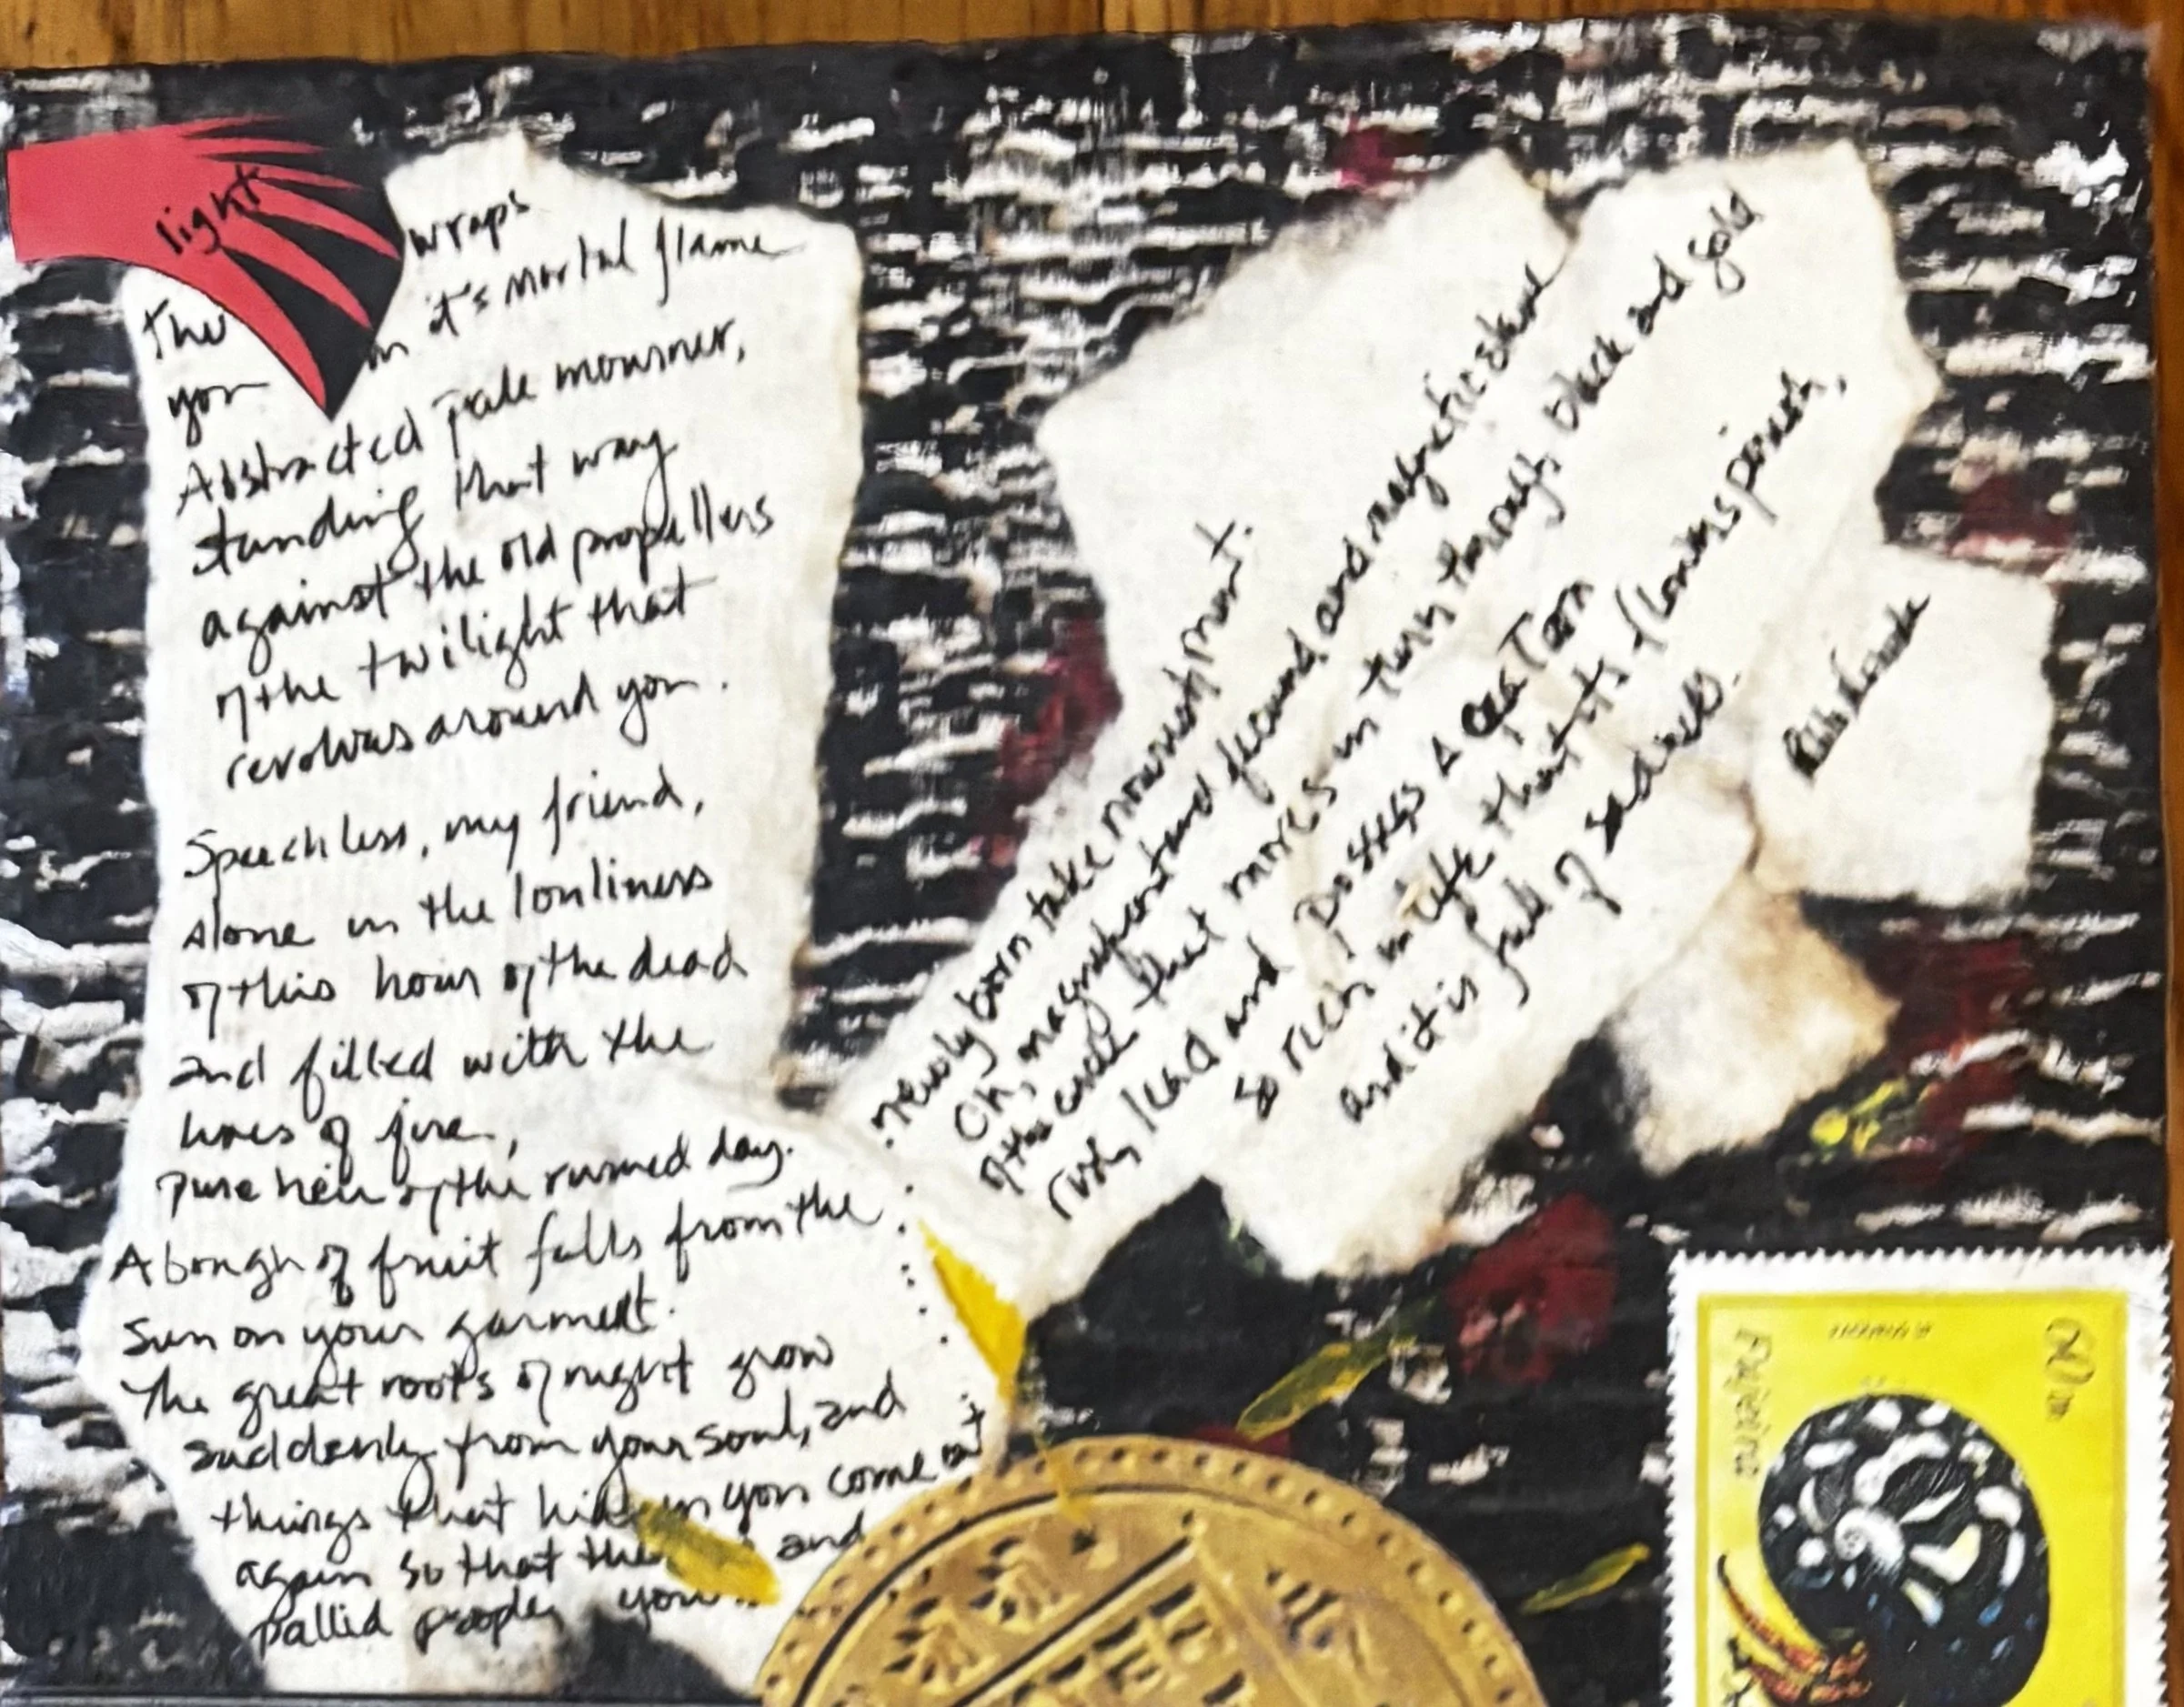 The light wraps
you in it's mortal flame
Abstracted pale mourner,
standing that way
against the old propellers
of the twilight that
revolves around you.
Speechless, my friend,
alone in the lonliness
of this hour of the dead
and filled with the
lives of fire,
pure heir of the ruined day.
A bough of fruit falls from the
sun on your garment.
The great roots of night grow
suddenly from your soul, and
things that hide in you come out
again so that the and
pallid people you..
newly born take nourishment.
Oh, magnificent and fecund and magnetic slave
of the circle that moves in turn through black and gold
rise, lead and possess a creation
so rich in life that its flowers perish,
and it is full of sadness.
Pablo Neruda